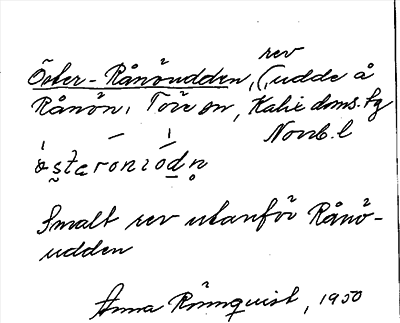 rev
Öster-Rånöudden, (, udde å
Rånön, Töre sn, Kalix doms. tg
Norrb. l
östəronıödn
Smalt rev utanför Rånö-
udden
Anna Rönnquist, 1950